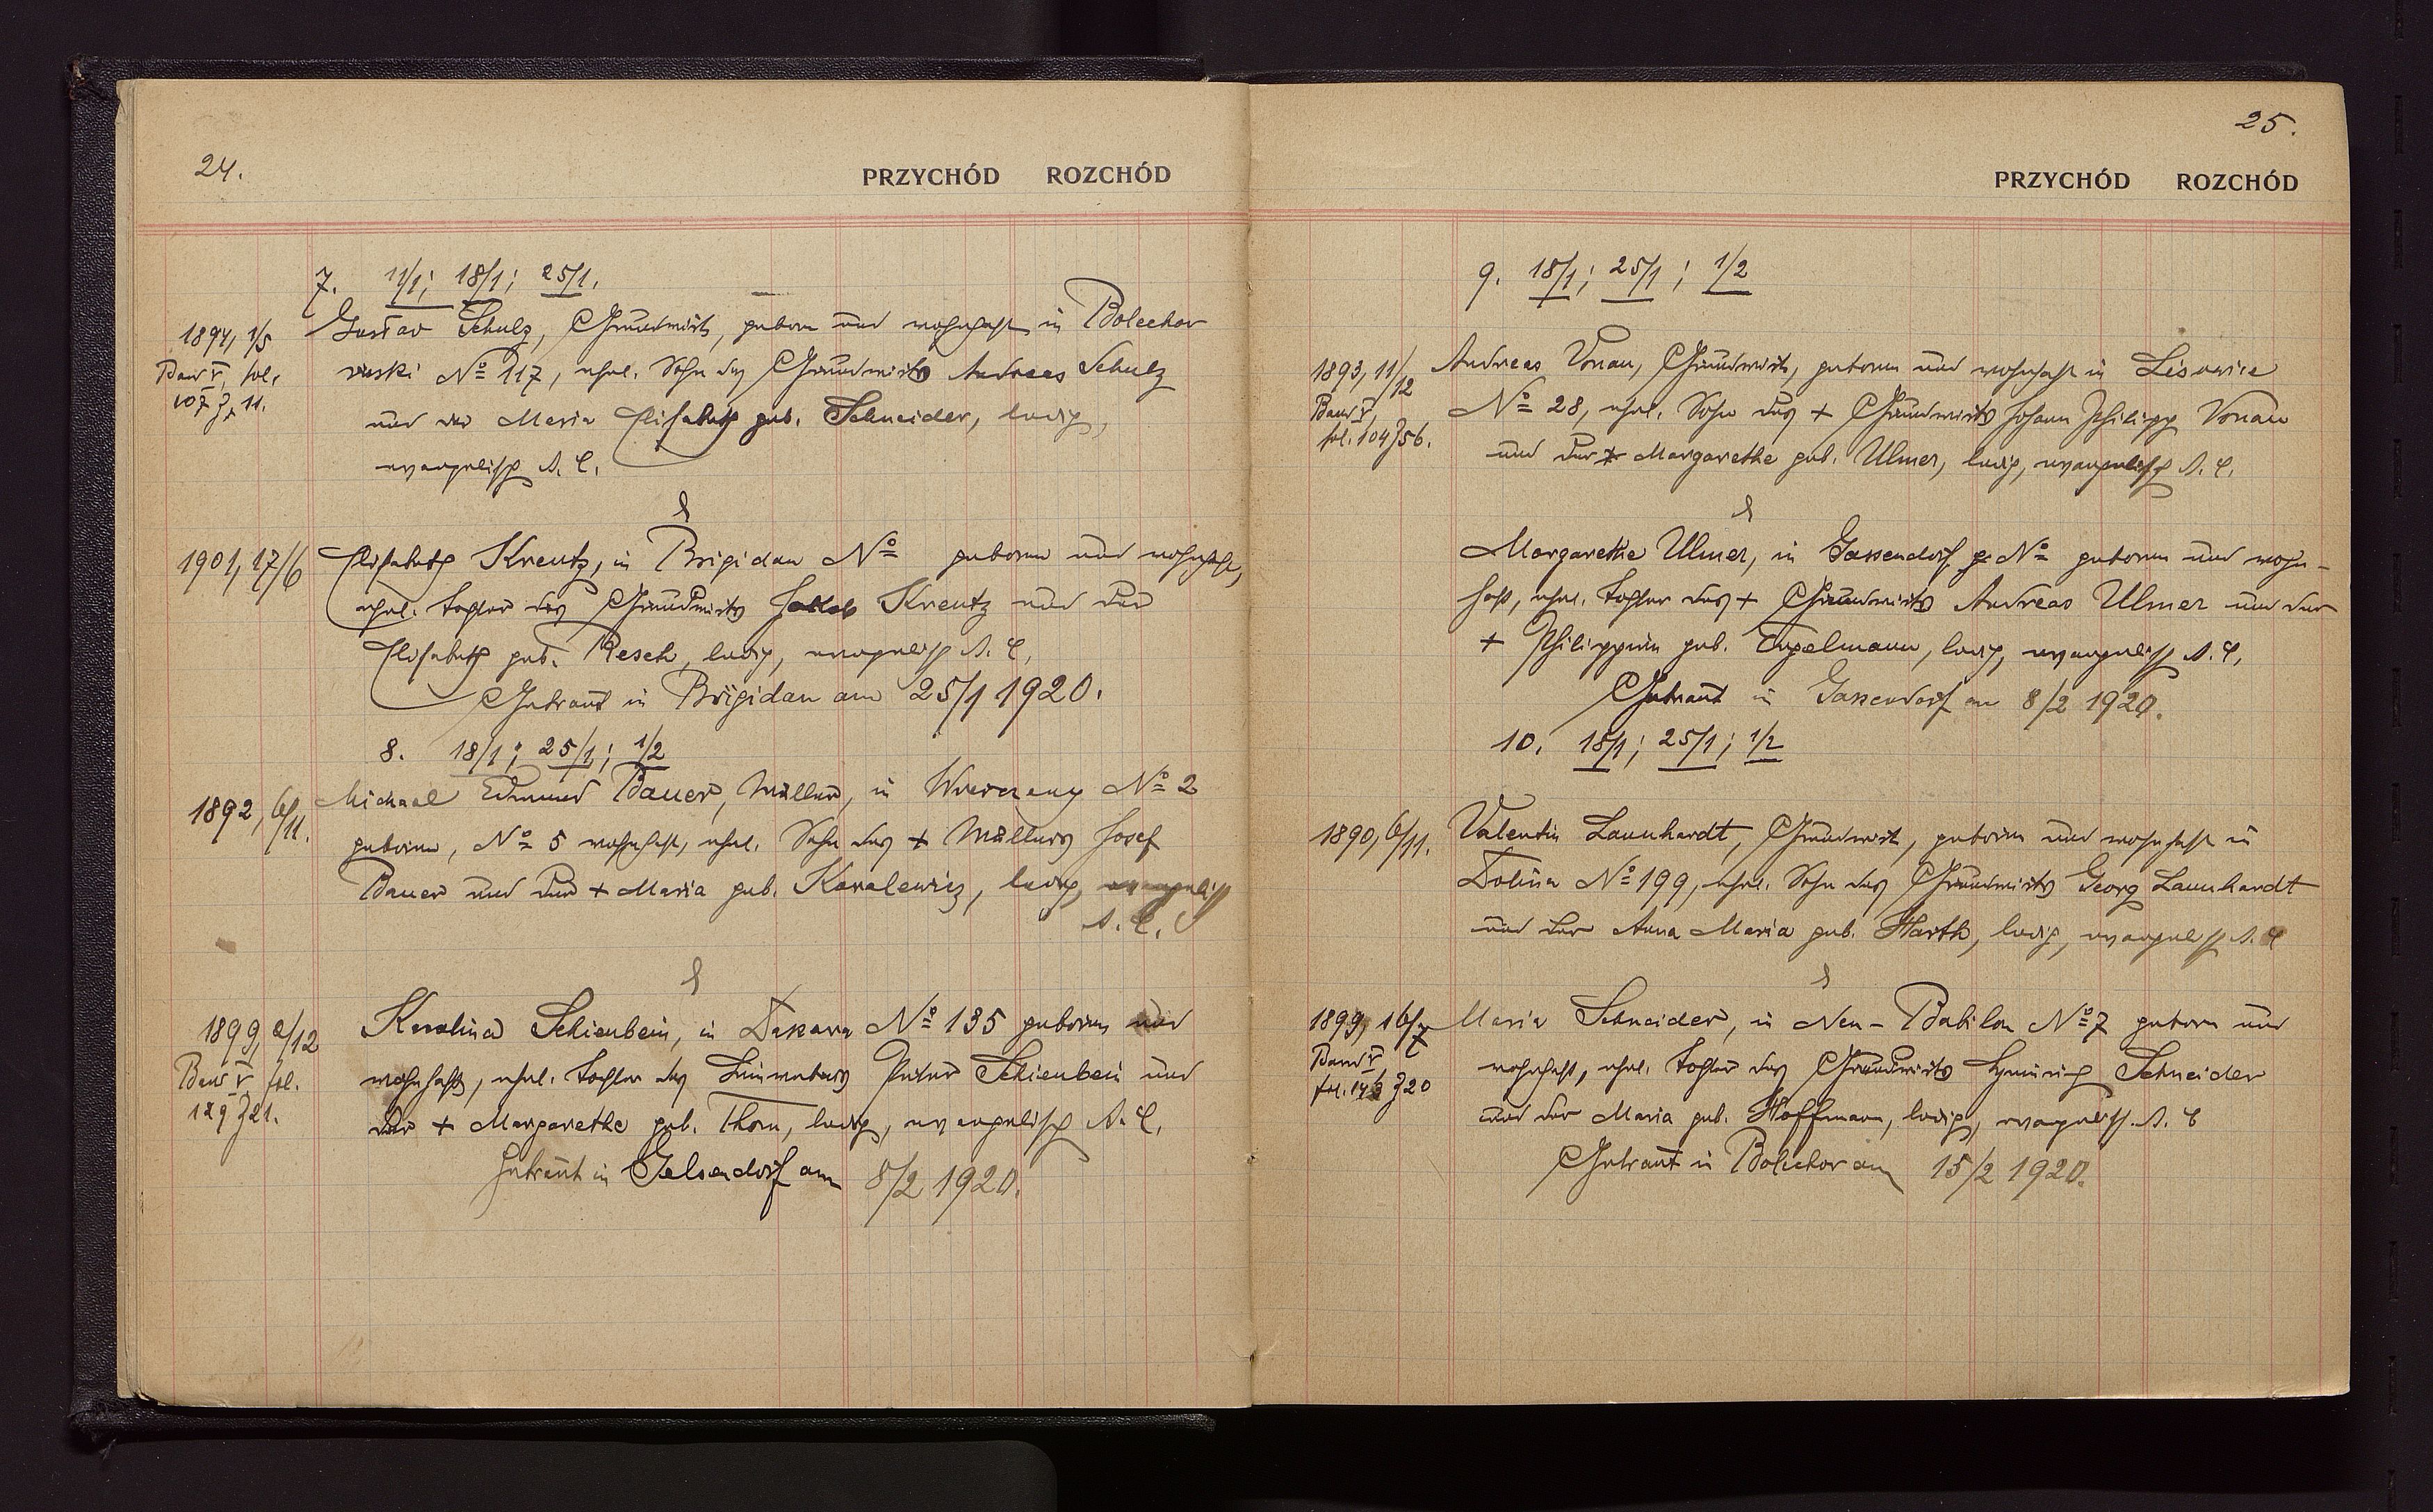 24.
PRZYCHÓD ROZCHÓD
7. 11/1; 18/1; 25/1.
1894, 1/5
Band V, fol.
107 Z. 11.
Gustav Schulz, Grundwirt, geboren und wohnhaft in Bolechow
ruski No 117, ehel. Sohn des Grundwirts Andreas Schulz
und der Maria Elisabeth geb. Schneider, ledig,
evangelisch A. C.
&
1901, 17/6
Elisabeth Kreutz, in Brigidau No geboren und wohnhaft,
ehel. Tochter des Grundwirts Jakob Kreutz und der
Elisabeth geb. Resch, ledig, evangelisch A. C.
Getraut in Brigidau am 25/1 1920.
8. 18/1; 25/1; 1/2
1892, 6/11.
Michael Edmund Bauer, Müller, in No 2
geboren, No 5 wohnhaft, ehel. Sohn des + Müllers Josef
Bauer und der + Maria geb. Kowalewicz, ledig, evangelisch
A. C.
&
1899, 2/12
Band V fol.
129 Z 21.
Karolina Schienbein, in No 135 geboren und
wohnhaft, ehel. Tochter des Leinwebers Peter Schienbein und
der + Margarethe geb. Thom, ledig, evangelisch A. C.
Getraut in Gelsendorf am 8/2 1920.
25.
PRZYCHÓD ROZCHÓD
9. 18/1; 25/1; 1/2
1893, 11/12
Band V,
fol. 104 Z 56.
Andreas Vonau, Grundwirt, geboren und wohnhaft in Lisowice
No 28, ehel. Sohn des + Grundwirts Johann Philipp Vonau
und der + Margarethe geb. Ulmer, ledig, evangelisch A. C.
&
Margarethe Ulmer, in Gassendorf No geboren und wohn-
haft, ehel. Tochter des + Grundwirts Andreas Ulmer und der
+ Philippin geb. Engelmann, ledig, evangelisch A. C.
Getraut in Gassendorf am 8/2 1920.
10. 18/1; 25/1; 1/2
1890, 6/11.
Valentin Launhardt, Grundwirt, geboren und wohnhaft in
Dolina No 199, ehel. Sohn des Grundwirts Georg Launhardt
und der Anna Maria geb. Harth, ledig, evangelisch A. C
&
1899, 16/7
Band V
fol. Z 20
Maria Schneider, in Neu-Babilon No 7 geboren und
wohnhaft, ehel. Tochter des Grundwirts Heinrich Schneider
und der Maria geb. Hoffmann, ledig, evangelisch A. C
Getraut in Bolechow am 15/2 1920.